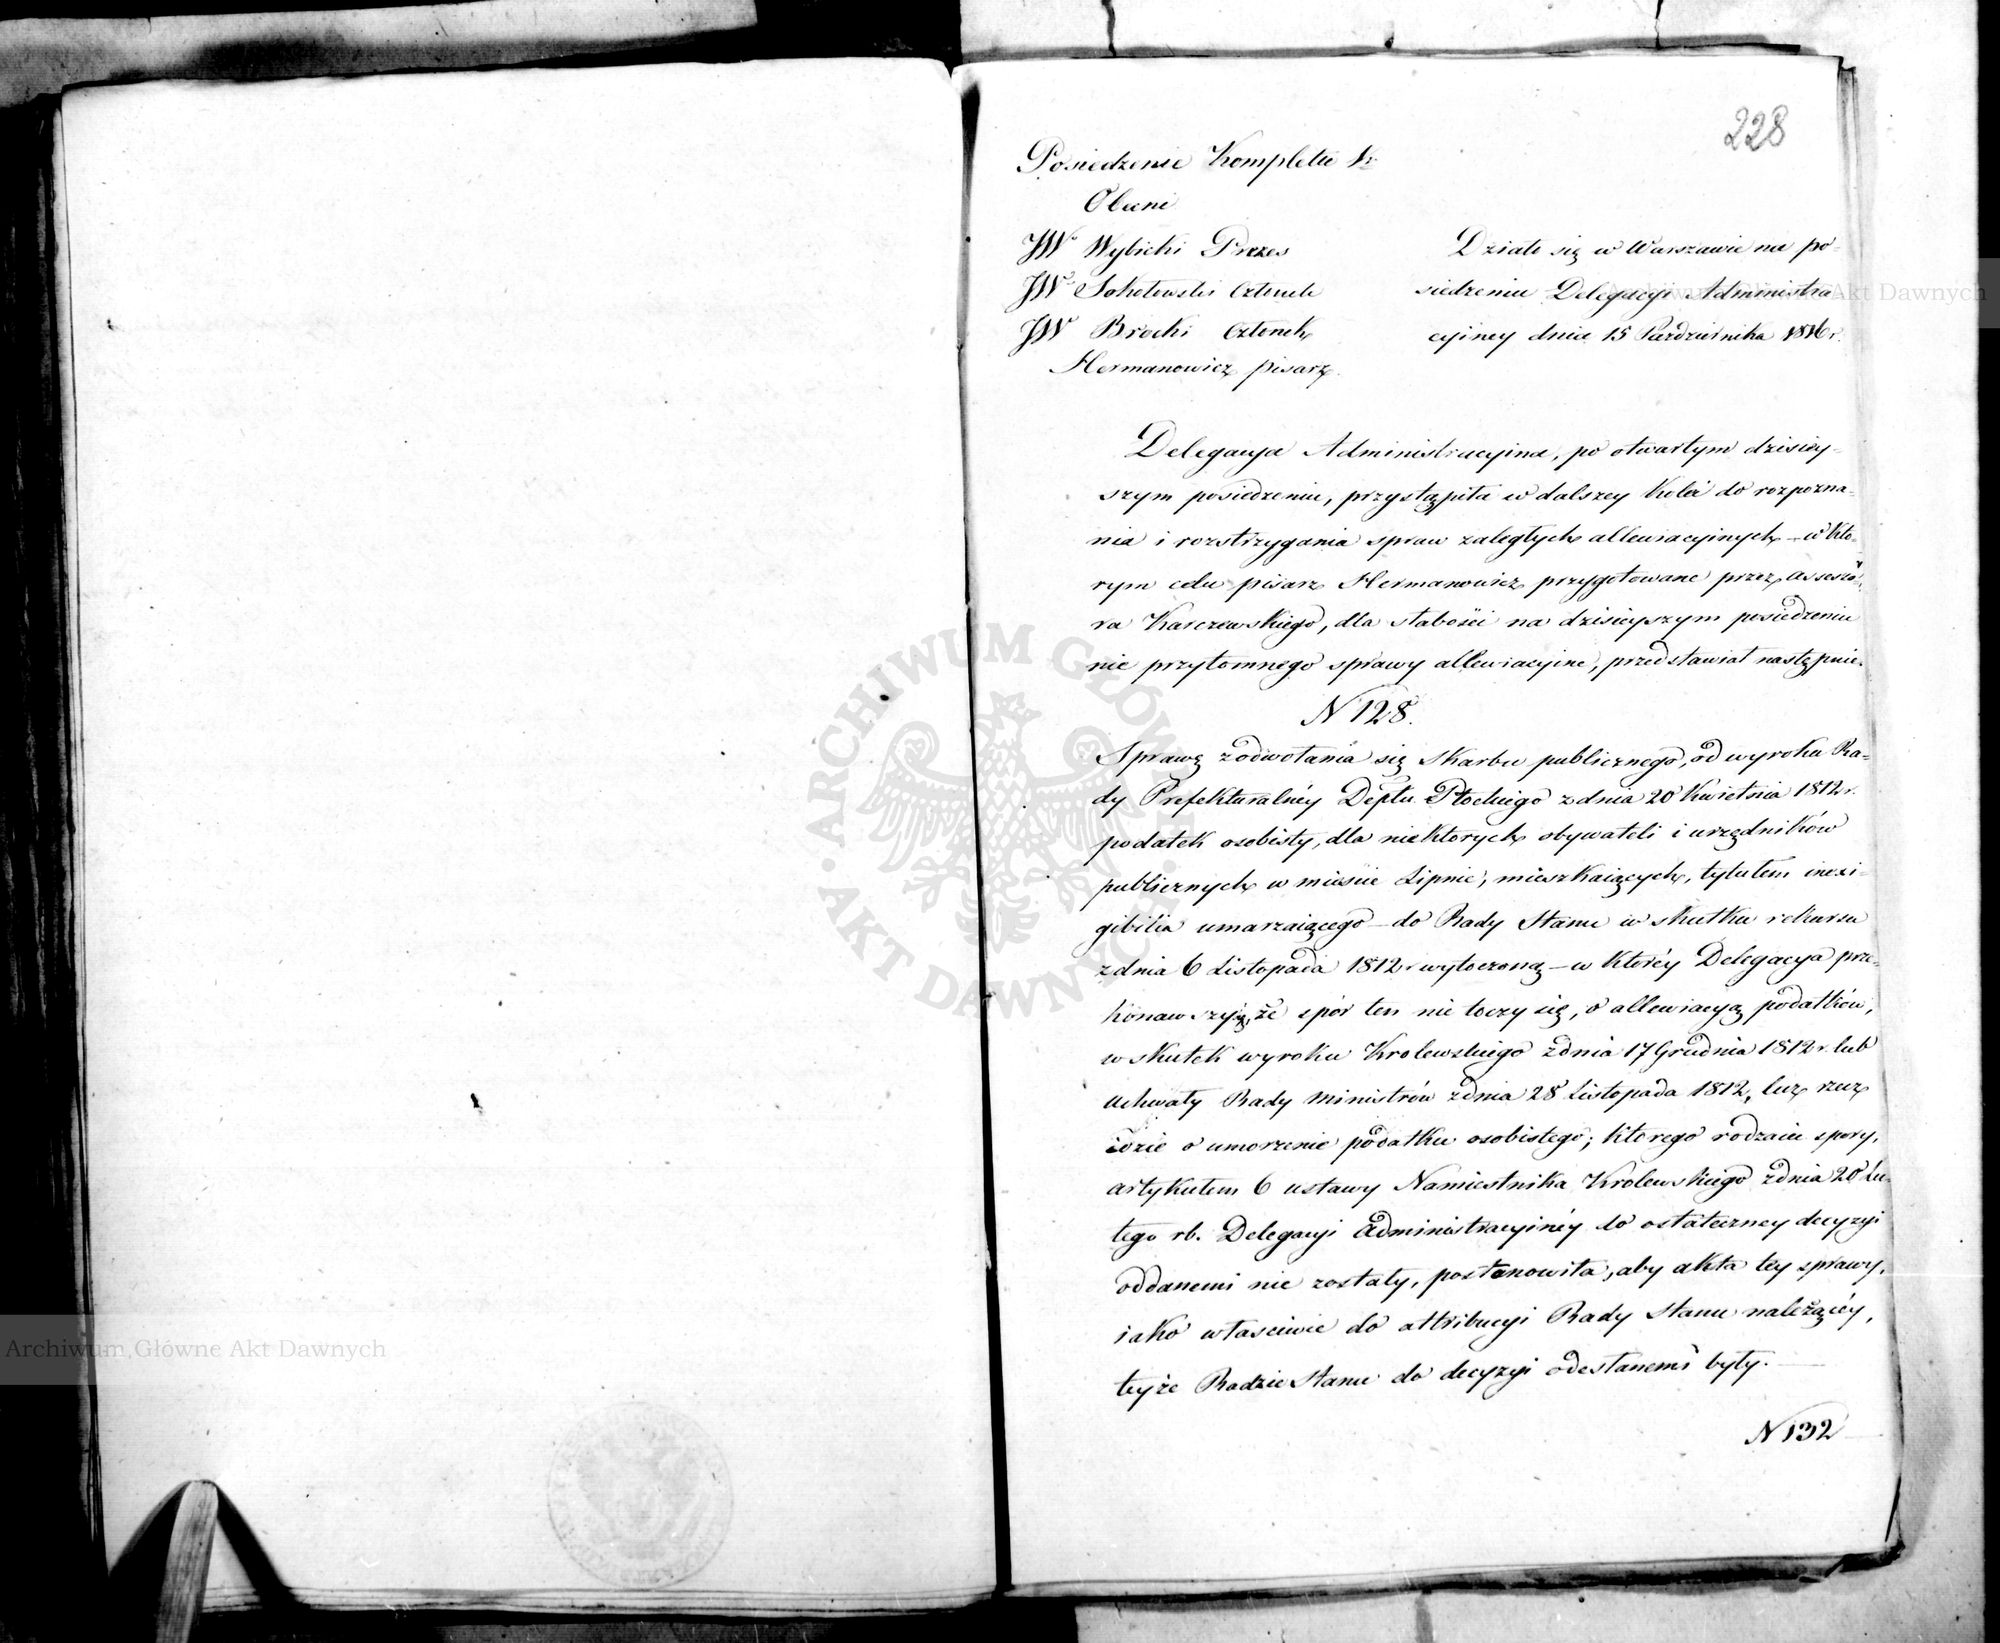 228
Posiedzenie Kompletu
Obecni
JW Wybicki Prezes
JW Sokołowski Członek
JW Brocki Członek
Hermanowicz pisarz.
Działo się w Warszawie na po-
siedzeniu Delegacyi Administra
cyiney dnia 15 Pazdziernika 1816 r.
Delegacya Administracyina, po otwartym dzisiey-
szym posiedzeniu, przystąpiła w dalszey kolei do rozpozna-
nia i rozstrzygania spraw zaległych allewiacyinych – w któ-
rym celu pisarz Hermanowicz przygotowane przez assesso-
ra Karczewskiego, dla słabości na dzisieyszym posiedzeniu
nie przytomnego sprawy allewiacyine, przedstawiał następnie.
N 128.
Sprawę z odwołania się skarbu publicznego, od wyroku Ra-
dy Prefekturalnéy Deptu Płockiego z dnia 20 Kwietnia 1812 r.
podatek osobisty, dla niektorych obywateli i urzędników
publicznych w mieście Lipnie, mieszkaiących, tytułem inexi-
gibilia umarzaiącego – do Rady Stanu w skutku rekursu
z dnia 6 Listopada 1812 r wytoczoną – w któréy Delegacya prze-
konawszy się, że spór ten nie toczy się, o allewiacyą podatków,
w skutek wyroku Krolewskiego z dnia 17 Grudnia 1812 r. lub
Uchwały Rady Ministrów z dnia 28 Listopada 1812, lecz rzecz
idzie o umorzenie podatku osobistego; ktorego rodzaiu spory,
artykułem 6 ustawy Namiestnika Krolewskiego z dnia 20 Lu-
tego rb. Delegacyi Administracyinéy do ostateczney decyzyi
oddanemi nie zostały, postanowiła, aby akta tey sprawy,
iako właściwie do attribucyi Rady Stanu należącéy,
teyże Radzie Stanu do decyzyi odesłanemi były.
N 132
Archiwum Główne Akt Dawnych
ARCHIWUM GŁÓWNE AKT DAWNYCH
Archiwum Główne Akt Dawnych